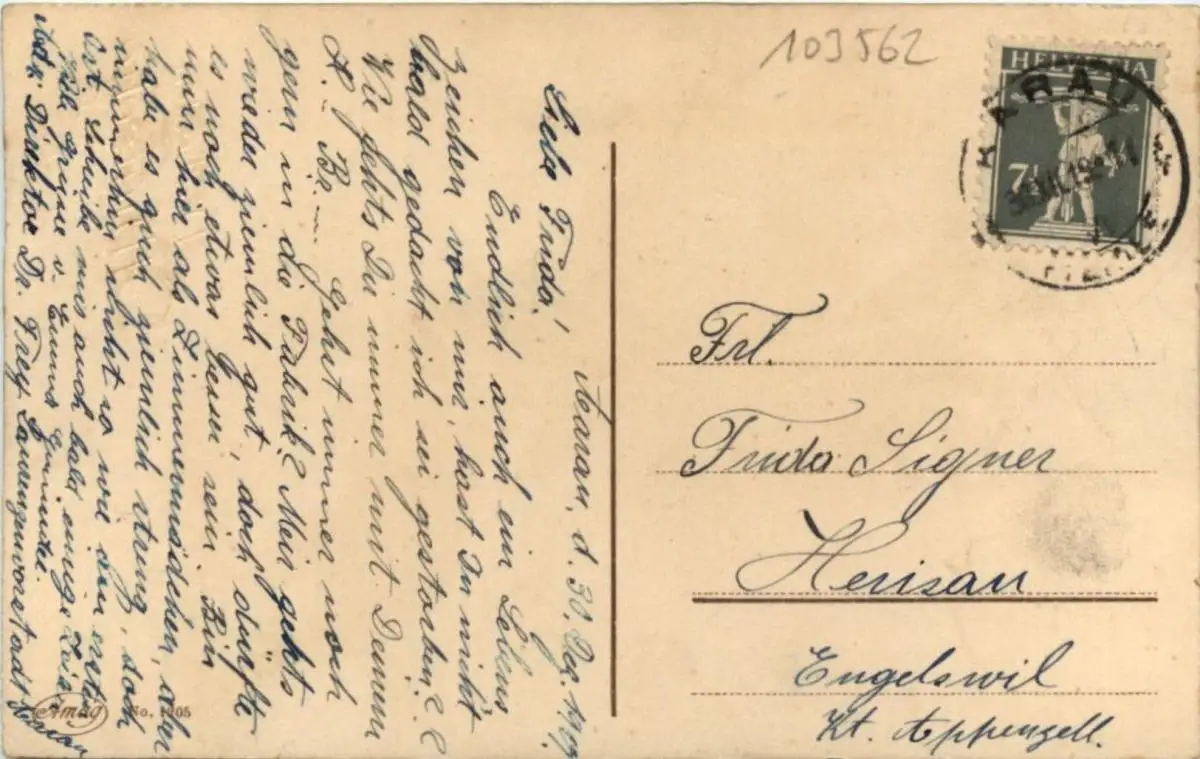 103562
HELVETIA
7½
AARAU
Aarau, d. 30. Dez. 1919.
Liebe Frida!
Endlich auch ein Lebens
zeichen von mir, hast Du nicht
bald gedacht ich sei gestorben?
Wie gehts Du immer mit Deinem
A. Be... Gehst immer noch
gern in die Fabrik? Mir gehts
wieder ziemlich gut, doch dürfte
es noch etwas besser sein. Bin
nun hier als Zimmermädchen, aber
habe es auch ziemlich streng, doch
immerhin nicht so wie am ersten
Ort. Schreibe mir auch bald einige Zeilen
Viele Grüsse v. Emma
Adr: Direktor Dr. Frey Laurenzenvorstadt Aarau
Frl.
Frida Signer
Herisau
Engelswil
Kt. Appenzell.
Amag No. 05